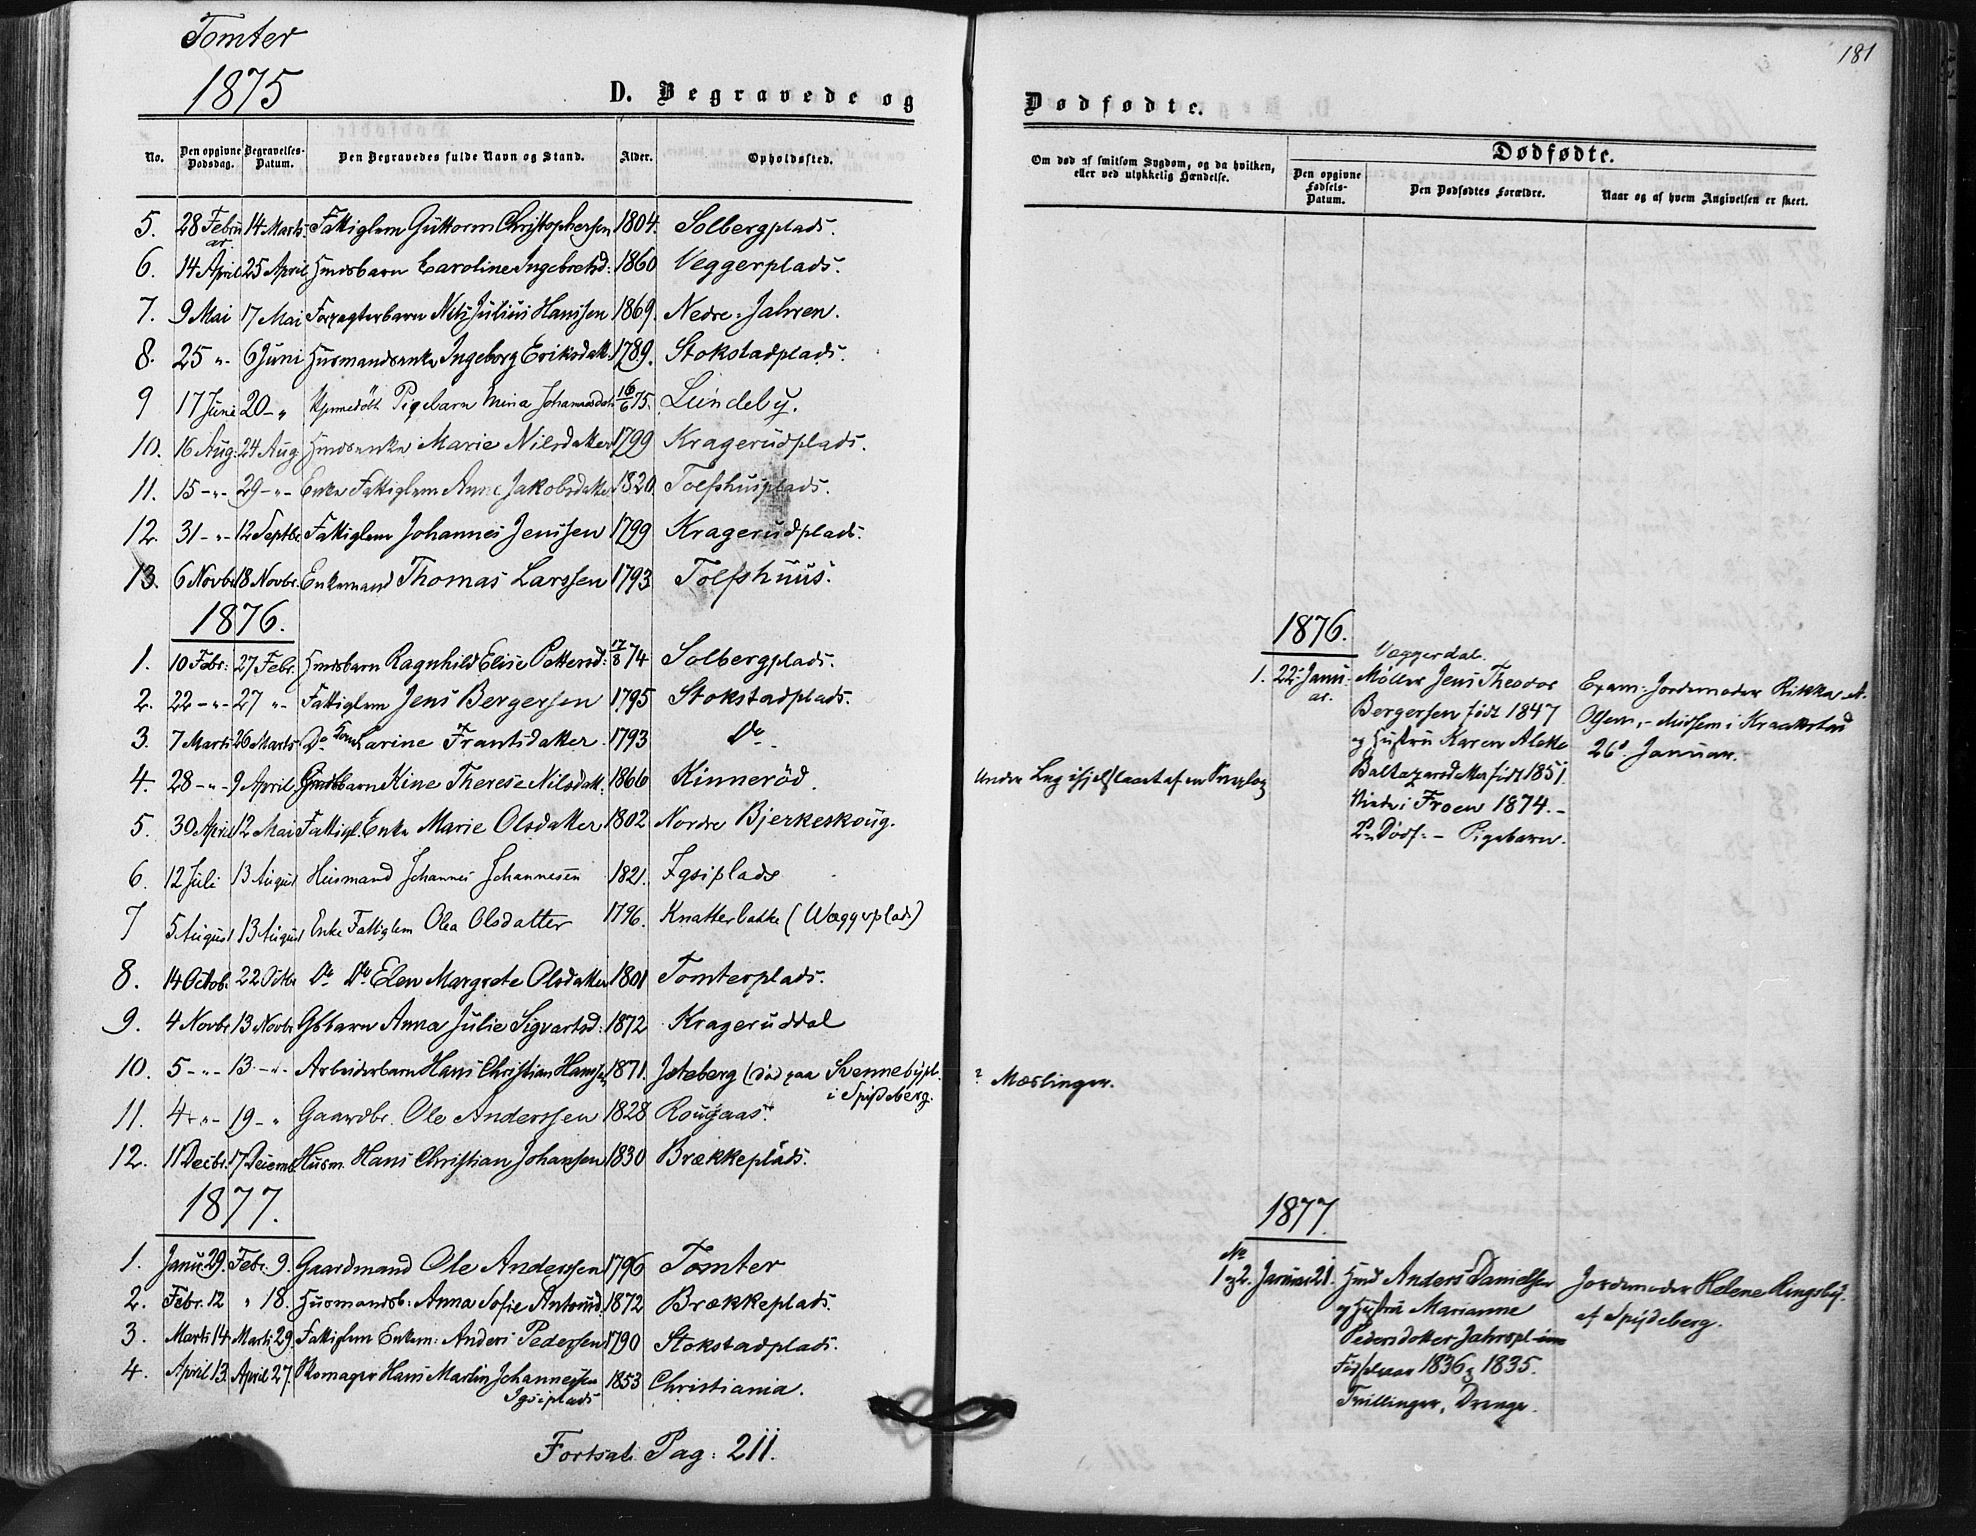 Tomter
1875
D. Begravede og
No. Den opgivne Dødsdag. Begravelses-Datum. Den Begravedes fulde Navn og Stand. Alder. Opholdssted.
5. 28 Februar. 14 Marts. Fattiglem Guttorm Christophersen 1804. Solbergplads.
6. 14 April 25 April Hmdsbarn Caroline Ingebretsd: 1860 Veggerplads.
7. 9 Mai 17 Mai Forpagterbarn Nils Julius Hanssen 1869. Nedre-Jahren.
8. 25 " 6 Juni Husmandsenke Ingeborg Eriksdatt. 1789. Stokstadplads.
9 17 Juni 20 - " Hjemmedøbt Pigebarn Mina Johannesdatt. 16/6 75. Lundeby.
10. 16 Aug: 24 Aug Hmdsenke Marie Nilsdatter 1799 Kragerudplads.
11. 15 - " - 29 - " - Enke Fattiglem Anne Jakobsdatter 1820. Tolfshusplads.
12. 31 - " - 12 Septbr. Fattiglem Johannes Jenssen 1799 Kragerudplads.
13. 6 Novbr. 18 Novbr. Enkemand Thomas Larssen 1793 Tolfshuus.
1876.
1. 10 Febr: 27 Febr. Hmdsbarn Ragnhild Elise Pettersd: 17/8 74 Solbergplads.
2. 22 - " - 27 " - Fattiglem Jens Bergersen 1795 Stokstadplads.
3. 7 Marts 26 Marts Do Kone Larine Frantsdatter. 1793 Do
4. 28 - " - 9 April Gmdsbarn Kine Therese Nilsdatt. 1866 Kinnerød.
5. 30 April 12 Mai Fattigl. Enke Marie Olsdatter 1802. Nordre Bjerkeskoug.
6. 12 Juli 13 August Husmand Johannes Johannesen 1821. Igsiplads
7 5 August 13 August Enke Fattiglem Olea Olsdatter 1796. Knatterbakke (Wæggerplads)
8. 14 Octob. 22 Octbr Do Do Elen Margrete Olsdatter 1801 Tomterplads.
9. 4 Novbr. 13 Novbr Gbbarn Anna Julie Sigvartsd: 1872 Krageruddal
10. 5 - " - 13. - " - Arbeiderbarn Hans Christian Hanssen 1871. Isteberg (død paa Svennebypl. i Spydeberg.
11. 4 - " - 19 - " Gaardbr. Ole Anderssen 1828 Rougaas.
12. 11 Decbr. 17 Decemb. Husm. Hans Christian Johansen 1830 Brækkeplads.
1877.
1. Janu. 29. Febr. 9. Gaardmand Ole Anderssen 1796 Tomter
2. Febr. 12 " 18. Husmandsb: Anna Sofie Antonsd. 1872 Brækkeplads.
3. Marts 14 Marts 29. Fattiglem Enkem: Anders Pederssen 1790 Stokstadplads.
4. April 13. April 27. Skomager Hans Martin Johannessen 1853 Christiania.
Igsiplads
Fortsat. Pag: 211.
181
Dødfødte.
Om død af smitsom Sygdom, og da hvilken, eller ved ulykkelig Hændelse.
Dødfødte.
Den opgivne Fødsels-Datum. Den Dødfødtes Forældre. Naar og af hvem Angivelsen er skeet.
1876.
Væggerdal.
1. 22. Januar. Møller Jens Theodor
Bergersen født 1847
og Hustru Karen Alette
Baltazarsdatter født 1851.
Viede i Froen 1874. -
Dødf. - Pigebarn.
Exam: Jordemoder Rikka A.
Olsen, - Midsem i Kraakstad
26d Januar.
Under Leg ihjelslaaet af en
? Mæslinger.
1877
No
1 og 2. Januar 21. Hmd Anders Danielsen
og Hustru Marianne
Pedersdatter Jahrspl
Fødselsaar 1836 og 1835.
Tvillinger, Drenge.
Jordemoder Helene Ringsby.
af Spydeberg.